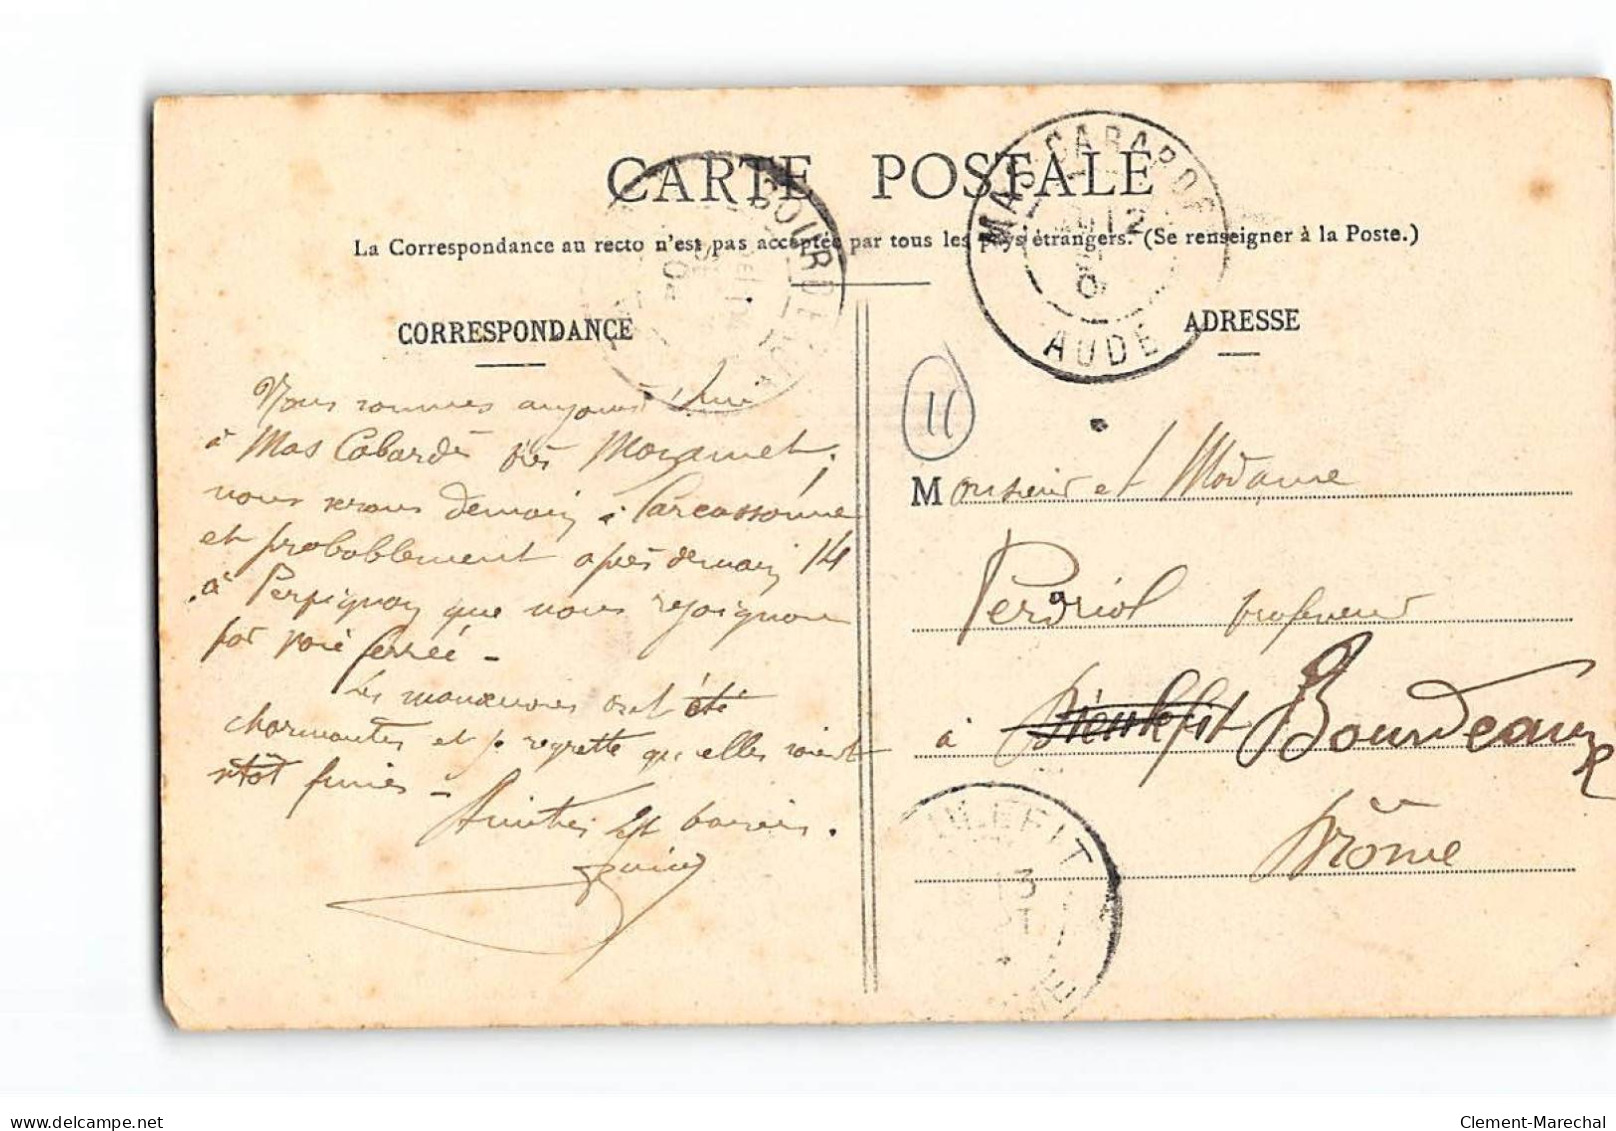 CARTE POSTALE
La Correspondance au recto n'est pas acceptée par tous les pays étrangers. (Se renseigner à la Poste.)
MAS-CABARDES
12
AUDE
BOURDEAUX
CORRESPONDANCE
ADRESSE
11
Nous sommes aujourd'hui
à Mas Cabardès près Mazamet.
nous serons demain à Carcassonne
et probablement après demain 14
à Perpignan que nous rejoignons
par voie ferrée -
Les manœuvres ont été
charmantes et je regrette qu'elles soient
sitôt finies -
Amitiés et baisers.
Monsieur et Madame
Perdriol professeur
à Dieulefit Bourdeaux
Drôme
DIEULEFIT
13
DROME
delcampe.net
Clement-Marechal